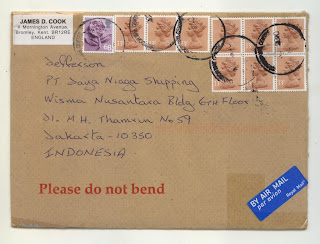 JAMES D. COOK
Mornington Avenue,
Bromley, Kent. BR12RE
ENGLAND
68
Jefferson
PT Jaya Niaga Shipping
Wisma Nusantara Bldg 6TH Floor
Jl. M.H. Thamrin No 59
Jakarta - 10350
INDONESIA
Please do not bend
BY AIR MAIL
par avion
Royal Mail